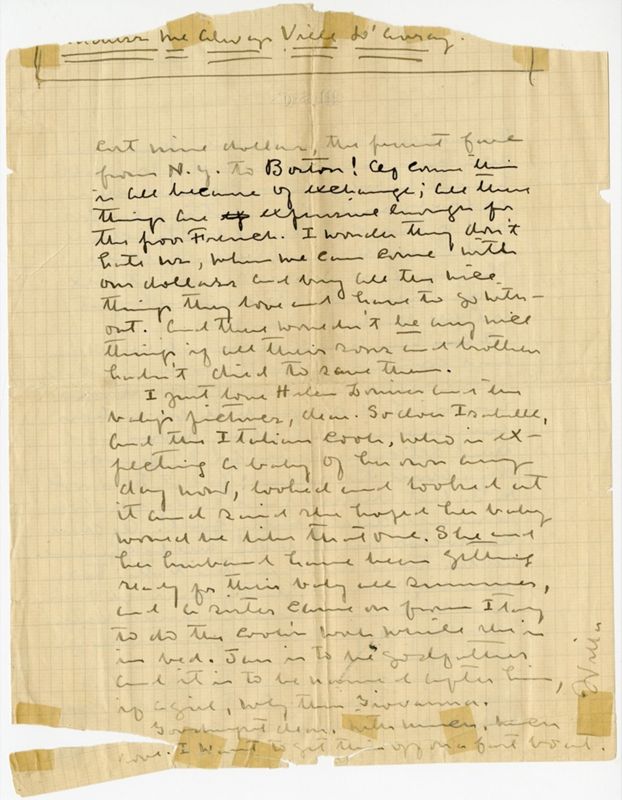 me always Ville D'Avray.
cost nine dollars, the present fare
from N.Y. to Boston! Of course this
is all because of exchange; all these
things are expensive enough for
the poor French. I wonder they don't
hate us, when we can come with
our dollars and buy all the nice
things they love and have to go with-
out. And there wouldn't be any nice
things, if all their sons and brothers
hadn't died to save them.
I just love Helen and the
baby's pictures, dear. So does Isabelle,
and the Italian cook, who is ex-
pecting a baby of her own any
day now, looked and looked at
it and said she hoped her baby
would be like that one. She and
her husband have been getting
ready for their baby all summer,
and a sister came on from Italy
to do the cook's work while she is
in bed. Ian is to be godfather
and it is to be named after him,
if a girl, why then Giovanna.
Goodnight dear, with much, much
love. I want to get this off on a fast boat.